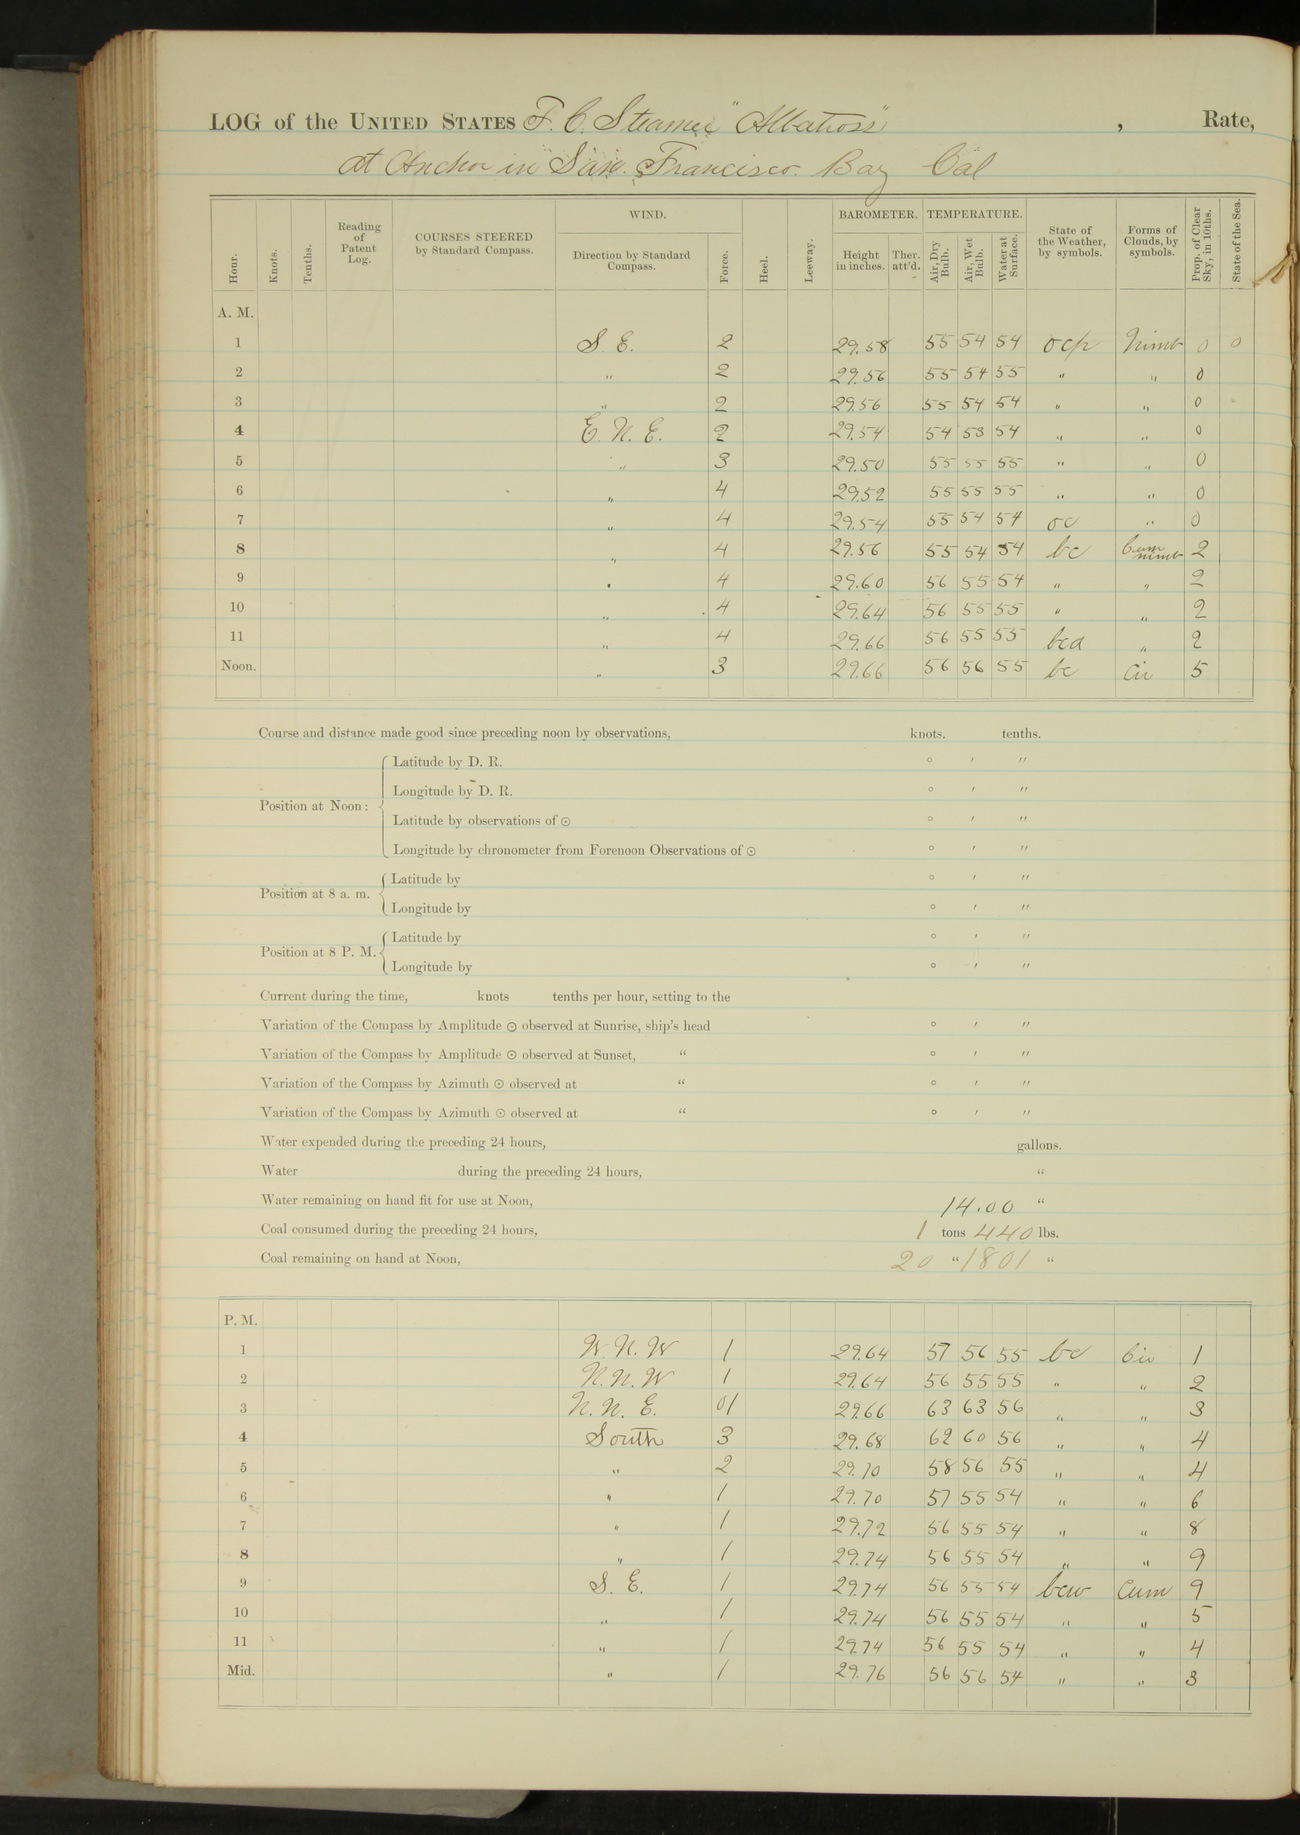 LOG of the UNITED STATES F. C. Steamer "Albatross", Rate,
at Anchor in San Francisco Bay Cal
Hour. Knots. Tenths. Reading of Patent Log. COURSES STEERED by Standard Compass. WIND. Direction by Standard Compass. Force. Heel. Leeway. BAROMETER. Height in inches. Ther. att'd. TEMPERATURE. Air, Dry Bulb. Air, Wet Bulb. Water at Surface. State of the Weather, by symbols. Forms of Clouds, by symbols. Prop. of Clear Sky, in 10ths. State of the Sea.
A. M.
1 S. E. 2 29.58 55 54 54 ocp Nimb 0 0
2 " 2 29.56 55 54 55 " " 0
3 " 2 29.56 55 54 54 " " 0
4 E. N. E. 2 29.54 54 53 54 " " 0
5 " 3 29.50 55 55 55 " " 0
6 " 4 29.52 55 55 55 " " 0
7 " 4 29.54 55 54 54 oc " 0
8 " 4 29.56 55 54 54 bc Cum nimb 2
9 " 4 29.60 56 55 54 " " 2
10 " 4 29.64 56 55 55 " " 2
11 " 4 29.66 56 55 55 bcd " 2
Noon. " 3 29.66 56 56 55 bc Cir 5
Course and distance made good since preceding noon by observations, knots. tenths.
Position at Noon: Latitude by D. R. ° ′ ″
Longitude by D. R. ° ′ ″
Latitude by observations of ⊙ ° ′ ″
Longitude by chronometer from Forenoon Observations of ⊙ ° ′ ″
Position at 8 a. m. Latitude by ° ′ ″
Longitude by ° ′ ″
Position at 8 P. M. Latitude by ° ′ ″
Longitude by ° ′ ″
Current during the time, knots tenths per hour, setting to the
Variation of the Compass by Amplitude ⊙ observed at Sunrise, ship's head ° ′ ″
Variation of the Compass by Amplitude ⊙ observed at Sunset, “ ° ′ ″
Variation of the Compass by Azimuth ⊙ observed at “ ° ′ ″
Variation of the Compass by Azimuth ⊙ observed at “ ° ′ ″
Water expended during the preceding 24 hours, gallons.
Water during the preceding 24 hours, “
Water remaining on hand fit for use at Noon, 14.00 “
Coal consumed during the preceding 24 hours, 1 tons 440 lbs.
Coal remaining on hand at Noon, 20 “ 1801 “
P. M.
1 W. N. W 1 29.64 57 56 55 bc Cir 1
2 N. N. W 1 29.64 56 55 55 " " 2
3 N. N. E. 01 29.66 63 63 56 " " 3
4 South 3 29.68 62 60 56 " " 4
5 " 2 29.70 58 56 55 " " 4
6 " 1 29.70 57 55 54 " " 6
7 " 1 29.72 56 55 54 " " 8
8 " 1 29.74 56 55 54 " " 9
9 S. E. 1 29.74 56 55 54 bcw Cum 9
10 " 1 29.74 56 55 54 " " 5
11 " 1 29.74 56 55 54 " " 4
Mid. " 1 29.76 56 56 54 " " 3